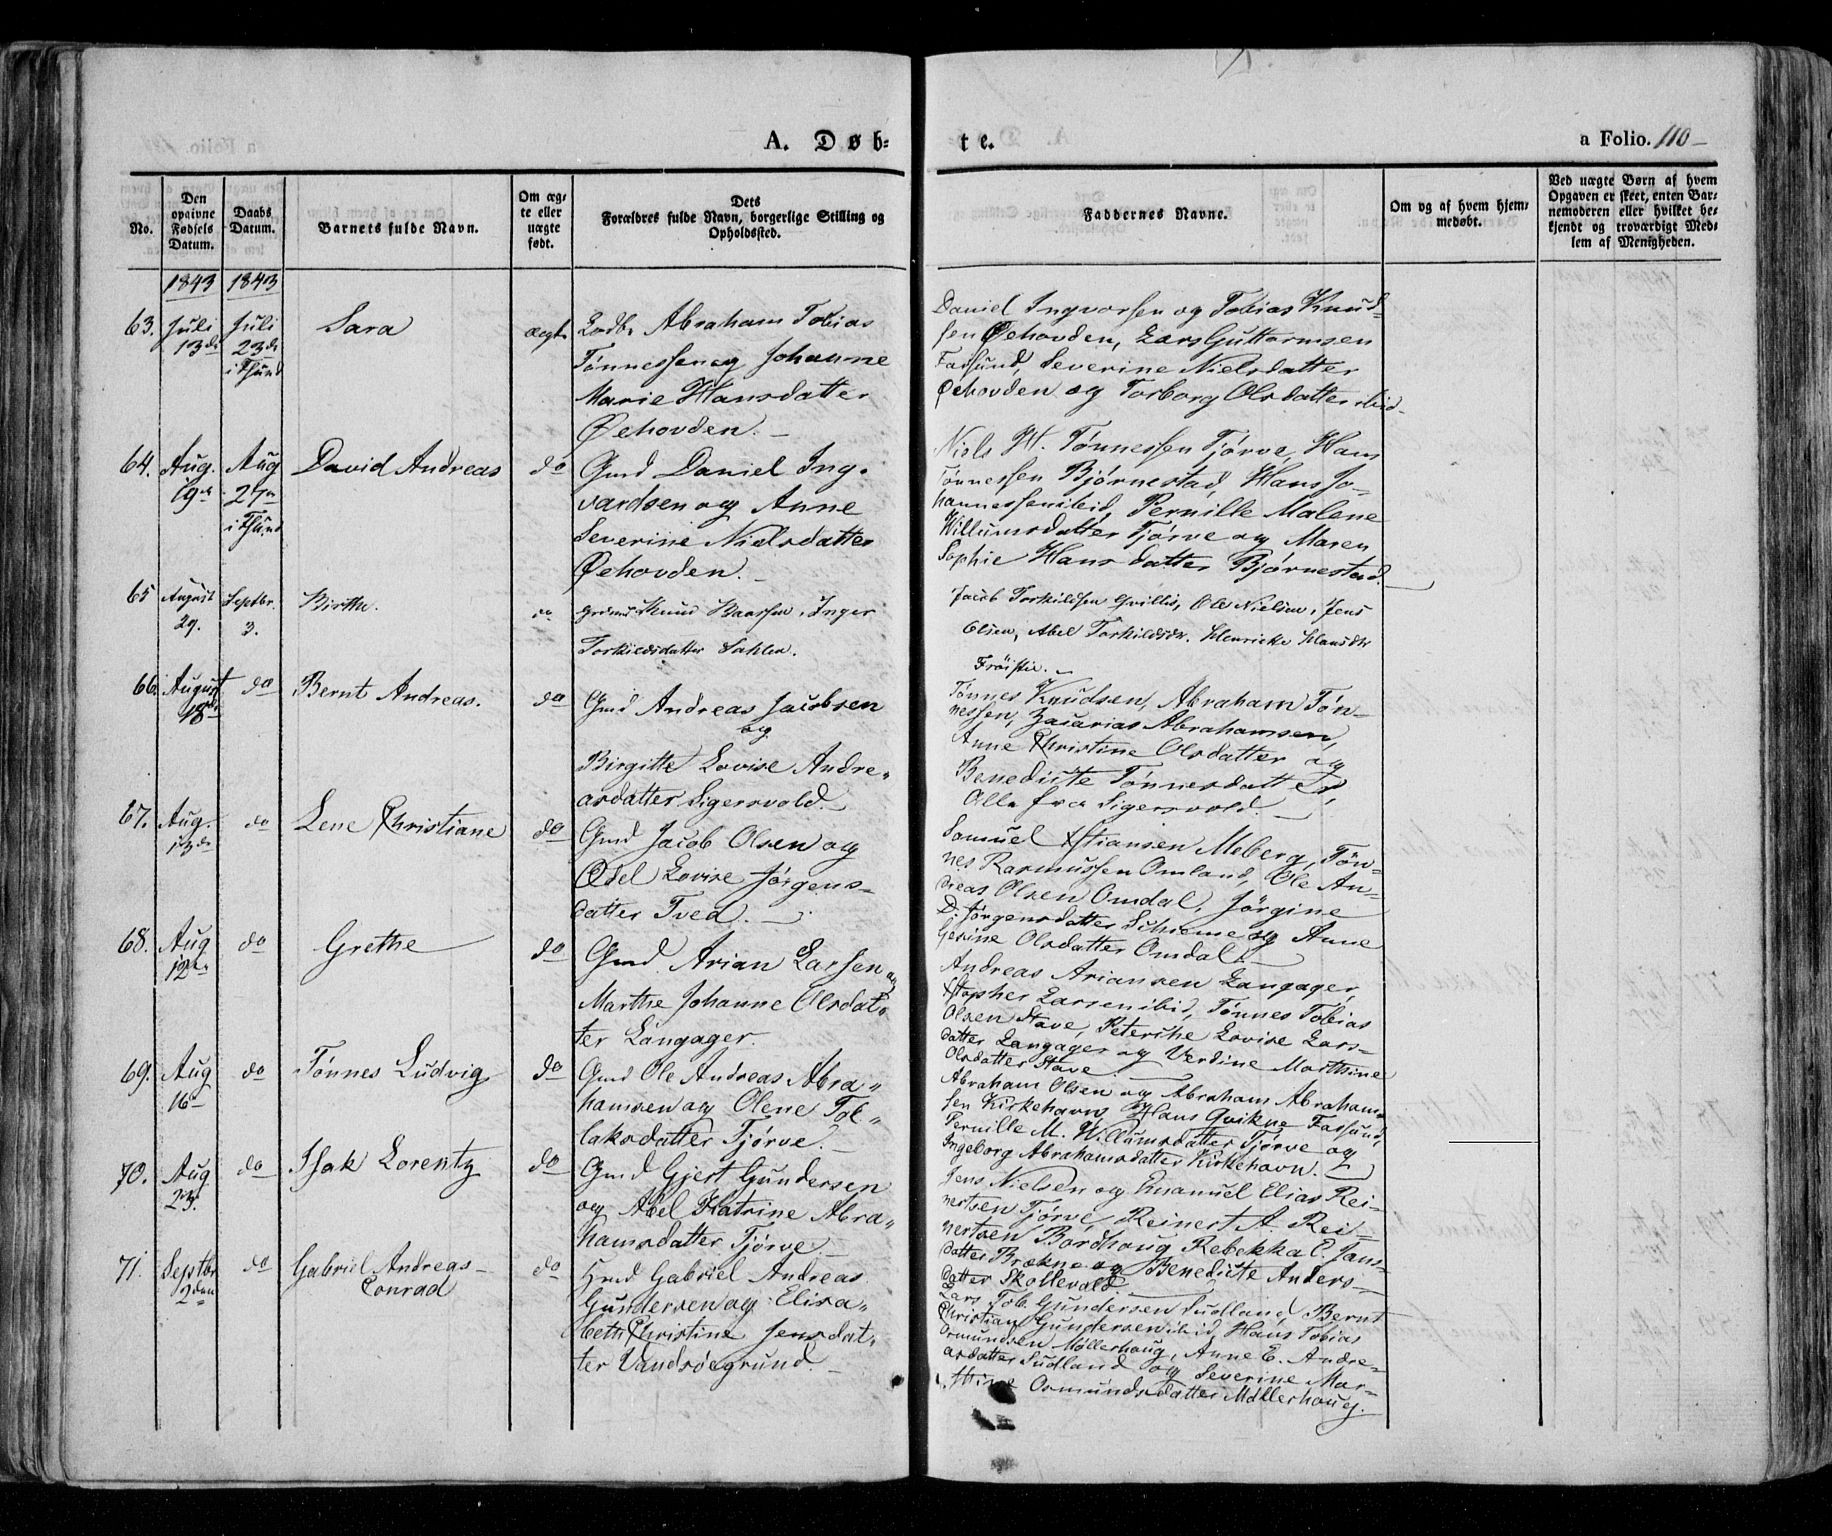 A. Døb-
te.
a Folio. 110
No.
Den opgivne Fødsels Datum.
Daabs Datum.
Barnets fulde Navn.
Om ægte eller uægte født.
Dets
Forældres fulde Navn, borgerlige Stilling og
Opholdssted.
Faddernes Navne.
Om og af hvem hjem-
medøbt.
Ved uægte Børn af hvem
Opgaven er skeet, enten Bar-
nemoderen eller hvilket be-
kjendt og troværdigt Med-
lem af Menigheden.
1843 1843
63. Juli 13de Juli 23de Sara ægte
Abraham Tobias
Tønnessen og Johanne
Marie Hansdatter
Øehovden.
Daniel Ingvorsen og Tobias Knud-
sen Øehovden, Lars Guttormsen
Farsund, Severine Nielsdatter
Øehovden og Torborg Olsdatter ibid.
64. Aug. 19de Aug 27de David Andreas do
Gmd Daniel Ing-
vardsen og Anne
Severine Nielsdatter
Øehovden.
Niels H. Tønnessen Tjørve, Hans
Tønnessen Bjørnestad, Hans Jo-
hannessen ibid, Pernille Malene
Willumsdatter Tjørve og Maren
Sophie Hansdatter Bjørnestad.
65 August 29. Septbr. 3. Birthe. do
Knud Baarsen, Inger
Torkildsdatter Sahlen.
Jacob Torkildsen Qvillis, Ole Nielsen, Jens
Olsen, Abel Torkildsdr. Henricke Hansdr
66. August 18de do Bernt Andreas. do
Gmd Andreas Jacobsen
og
Birgitte Lovise Andre-
asdatter Sigersvold.
Tønnes Knudsen, Abraham Tøn-
nessen, Zacarias Abrahamsen,
Anne Christine Olsdatter og
Benedicte Tønnesdatter,
Alle fra Sigersvold.
67. Aug. 13de do Lene Christiane do
Gmd Jacob Olsen og
Osel Lovise Jørgens-
datter Tved.
Samuel Xstiansen Meberg, Tøn-
nes Rasmussen Omland, Ole An-
dreas Olsen Omdal, Jørgine
D. Jørgensdatter Schieme og Anne
Gesine Olsdatter Omdal.
68. Aug 12te do Grethe do
Gmd Arian Larsen og
Marthe Johanne Olsdat-
ter Langager.
Andreas Ariansen Langager,
Xstopher Larsen ibid, Tønnes Tobias
Olsen Stave, Peterike Lovise Lars-
datter Langager og Verdine Marthine
Olsdatter Stave.
69. Aug 16 do Tønnes Ludvig do
Gmd Ole Andreas Abra-
hamsen og Olene Tol-
laksdatter Tjørve.
Abraham Olsen og Abraham Abraham-
sen Kirkehavn, Hans Qvikne Farsund,
Pernille M. Willumsdatter Tjørve og
Ingeborg Abrahamsdatter Kirkehavn.
70. Aug 23. do Isak Lorentz do
Gmd Gjert Gundersen
og Abel Katrine Abra-
hamsdatter Tjørve.
Jens Nielsen og Emanuel Elias Rei-
nertsen Tjørve, Reinert A. Rei-
nertsen Bordhoug, Rebekka C. Jans-
datter Brækne og Benedicte Anders-
datter Skollevold.
71. Septbr 2den do Gabriel Andreas
Conrad do
Hmd Gabriel Andreas
Gundersen og Elisa-
beth Christine Jensdat-
ter Vandsøegrund.
Lars Tob. Gundersen Sudland, Bernt
Christian Gundersen ibid, Hans Tobias
Ormundsen Møllerhoug, Anne E. Andre-
asdatter Sudland og Severine Mar-
thine Osmundsdatter Møllerhoug.